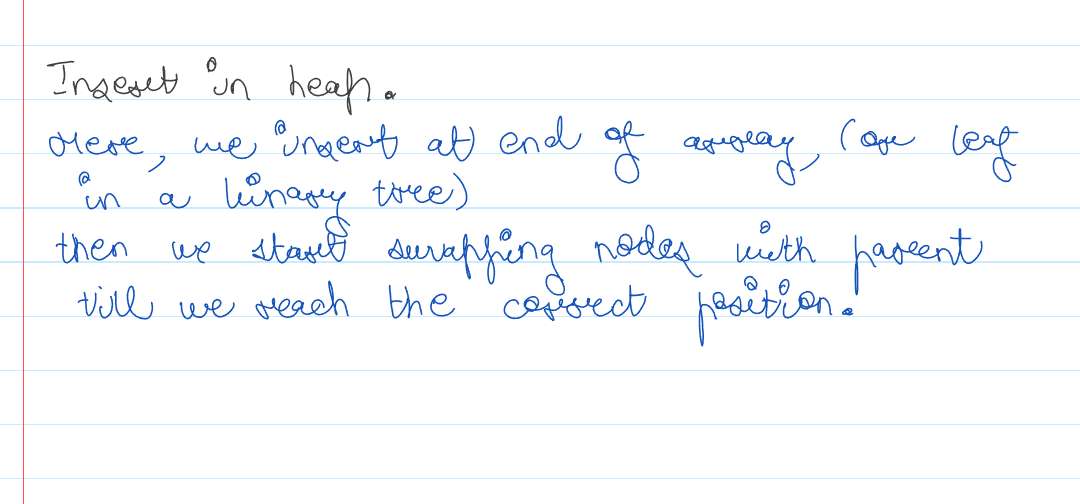 Insert in heap.
Here, we insert at end of array, (or leaf
in a binary tree)
then we start swapping nodes with parent
till we reach the correct position.